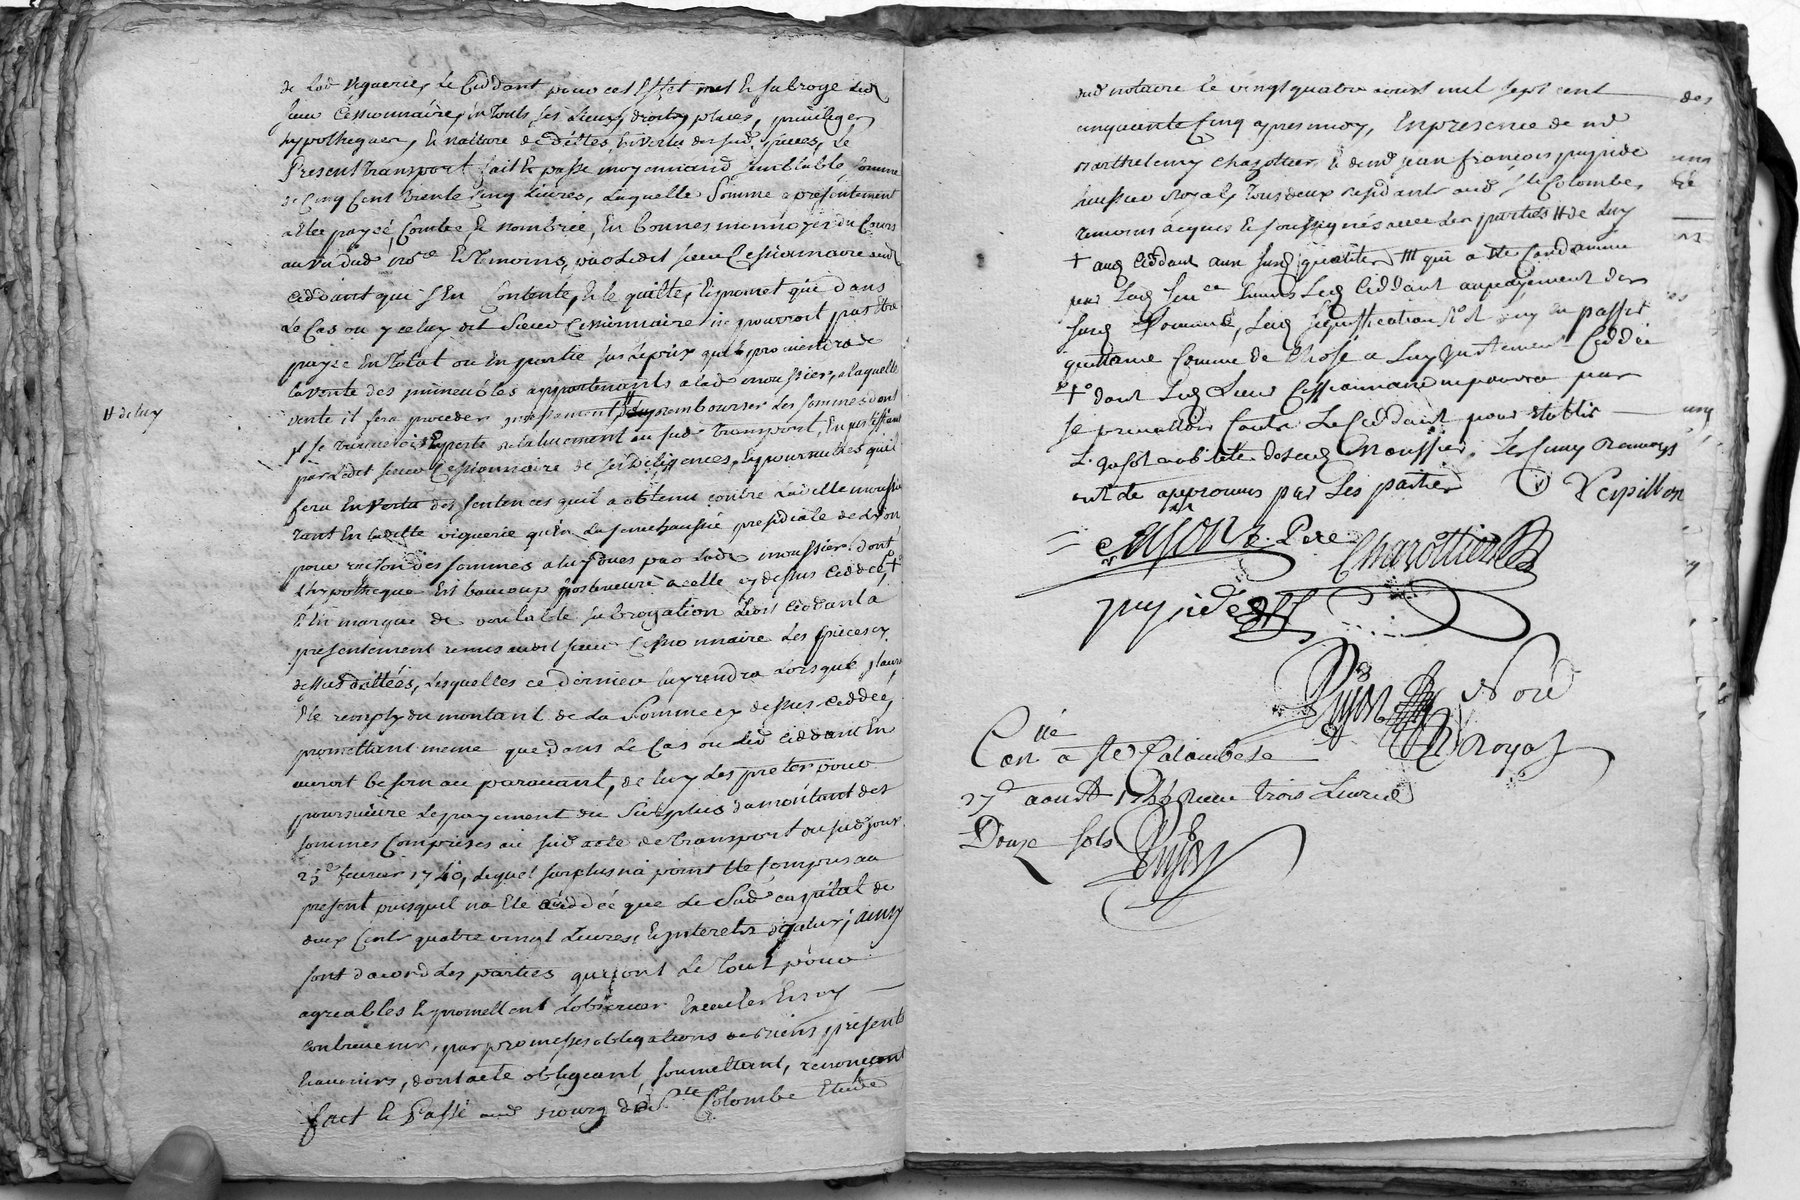 de lad viguerie, le Ceddant pour cet effet met et subroge led
sieur Cessionnaire, en touts ses Lieux, droits, places, privileges
hypotheques, et nature de dettes, en vertu des sud pieces, le
Present transport fait et passé moyennand semblable somme
de Cinq Cent trente Cinq Livres, laquelle Somme a présentement
été payée, Comtée et nombrée, en bonnes monnoyes du Cours
au vu dud nore et temoins, par ledit sieur Cessionnaire aud
Ceddant qui s'en Contente, et le quitte, et promet que dans
Le Cas ou yceluy dit Sieur Cessionnaire ne pourroit pas être
payée en total ou en partie sur le prix qui proviendra de
la vente des immeubles appartenants a lad moussier, a laquelle
vente il fera proceder incessament rembourser les sommes dont
H de luy
il se trouveroit en perte relativement au sud transport, en justiffiant
par ledit sieur Cessionnaire de ses diligences, et poursuittes qu'il
fera en vertu des sentences qu'il a obtenu contre ladite moussier
tant en ladite viguerie qu'en la senechaussée presidiale de Lyon
pour raison des sommes a luy dues par lade moussier, dont
L'hypotheque est beaucoup posterieure a celle cy dessus Ceddée, +
et en marque de veritable subrogation ledit Ceddant a
présentement remis audit sieur Cessionnaire les pieces cy
dessus dattées, lesquelles ce dernier luy rendra lorsque il aura
été remply du montant de la Somme cy dessus Ceddée,
promettant meme que dans le Cas ou led Ceddant en
auroit besoin au paravant, de luy les preter pour
poursuivre le payement du Surplus du montant des
sommes Comprises au sud acte de transport du sud jour
25e fevrier 1740, lequel surplus n'a point été Compris au
present puisquil n'a été ceddée que le Sud capital de
deux Cents quatre vingt Livres, et interets d'icelux; ainsy
sont d'acord les parties qui ont le tout pour
agreables et promettent L'observer executer et n'y
contrevenir, par promesses obligations de biens présents
et avenirs, dont acte obligeant, soumettant, renonçant
fait et Passé aud Bourg de Ste Colombe Etude
dud notaire le vingt quatre aoust mil sept cent
cinquante Cinq apres midy, En presence de me
Barthelemy Chazottier et de me jean françois puyside
huissier Royal, tous deux residants aud Ste Colombe,
temoins requis et soussignés avec les parties H de luy
+ aud Ceddant aux susd qualités qui a été Condamné
par lad sence envers led Ceddant au payement des
susd Sommes, lad signiffication en passer
quittance Comme de Chose a luy justement Ceddée
+ dont led Sieur Cessionnaire ne pourra pas
se prevalloir Contre le Ceddant pour etablir
L'insolvabilité de lad Moussier. les renvoys
ont été approuvés par les parties Verpillon
Chazottier
puyside
Pujos
Noré
Royal
Conlle a Ste Colombe le
27e aoust 1755 Reçu trois Livres
Douze sols
Pujos